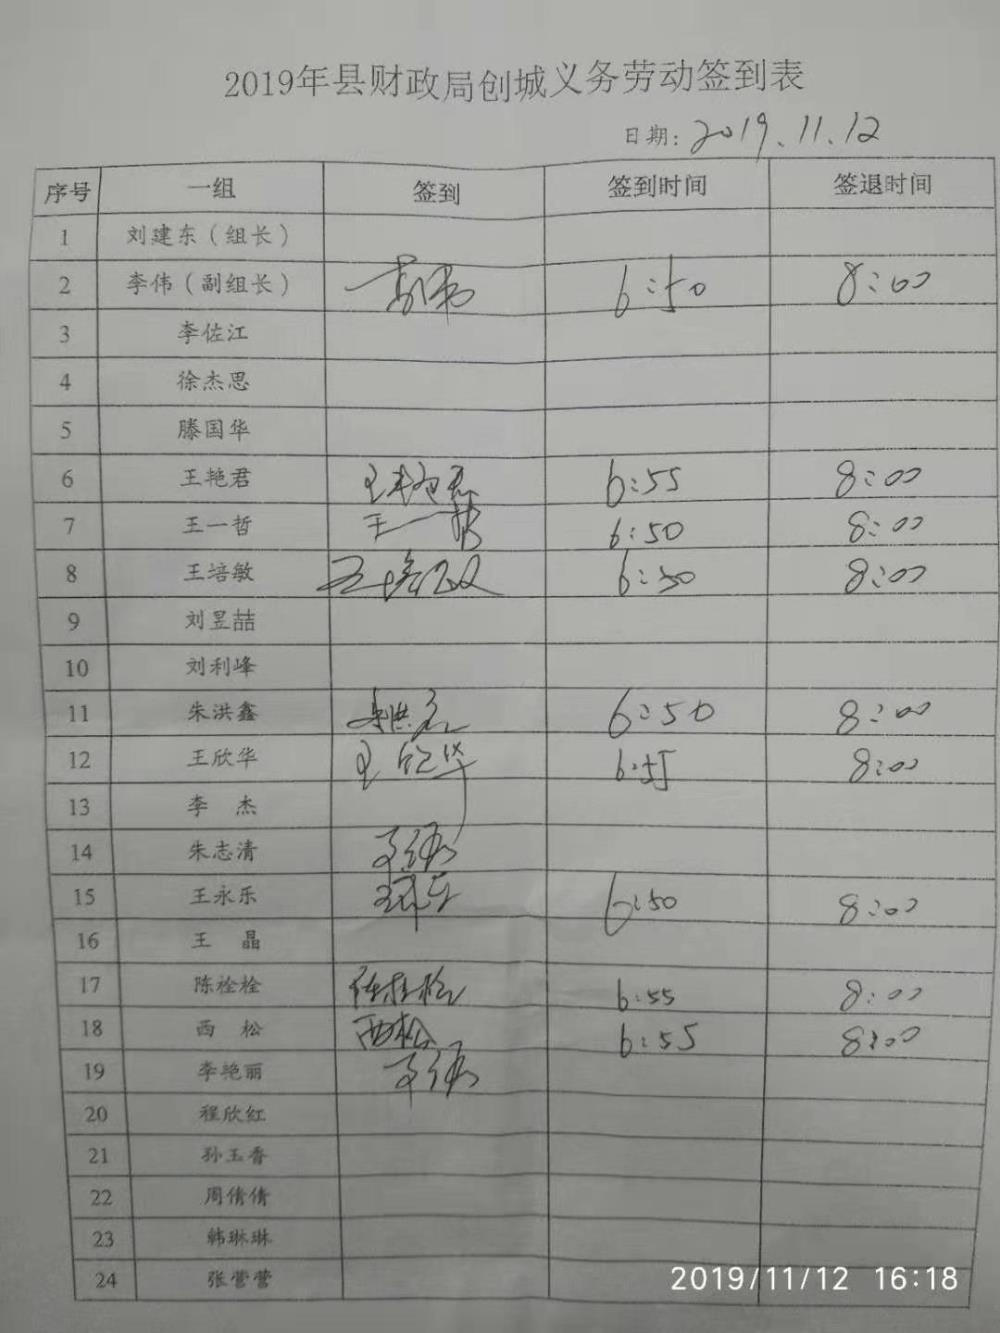 2019年县财政局创城义务劳动签到表
日期: 2019.11.12
序号 一组 签到 签到时间 签退时间
1 刘建东（组长）
2 李伟（副组长） 李伟 6:50 8:00
3 李佐江
4 徐杰思
5 滕国华
6 王艳君 王艳君 6:55 8:00
7 王一哲 王一哲 6:50 8:00
8 王培敏 王培敏 6:50 8:00
9 刘昱喆
10 刘利峰
11 朱洪鑫 朱洪鑫 6:50 8:00
12 王欣华 王欣华 6:55 8:00
13 李 杰
14 朱志清
15 王永乐 王永乐 6:50 8:00
16 王 晶
17 陈栓栓 陈栓栓 6:55 8:00
18 西 松 西松 6:55 8:00
19 李艳丽
20 程欣红
21 孙玉香
22 周倩倩
23 韩琳琳
24 张营营
2019/11/12 16:18